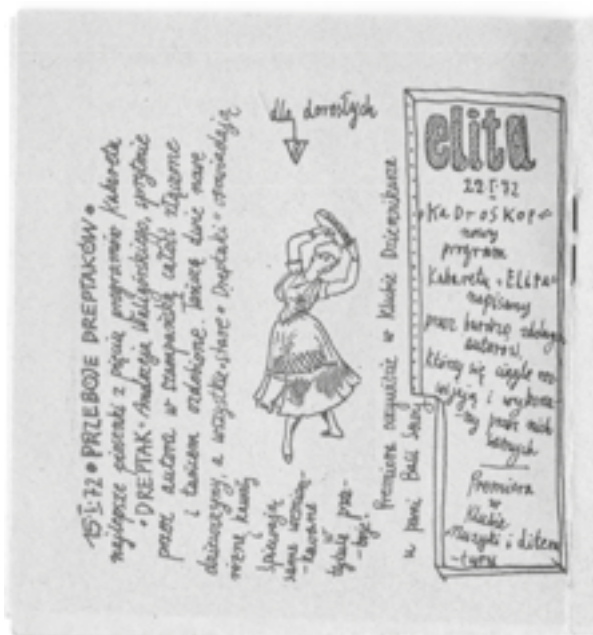 15 I.72 • PRZEBOJE DREPTAKÓW •
najlepsze piosenki z pięciu programów Kabaretu
• DREPTAK • Andrzeja Waligórskiego, sprytnie
przez autora w szampańską całość złączone
i tańcem ozdobione. Tańczą dwie nowe
dziewczyny, a wszystkie • stare • Dreptaki • opowiadają
kawały
i
śpiewają
w
tytule prze-
-boje.
dla dorosłych
Premiera oczywiście w Klubie Dziennikarza
u pani Basi
elita
22 I.72
• KaDroSKop •
nowy
program
Kabaretu • Elita •
napisany
przez bardzo zdolnych
autorów,
którzy się ciągle roz-
wijają i wykona-
ny przez nich
samych
Premiera
w
Klubie
Muzyki i Litera-
-tury